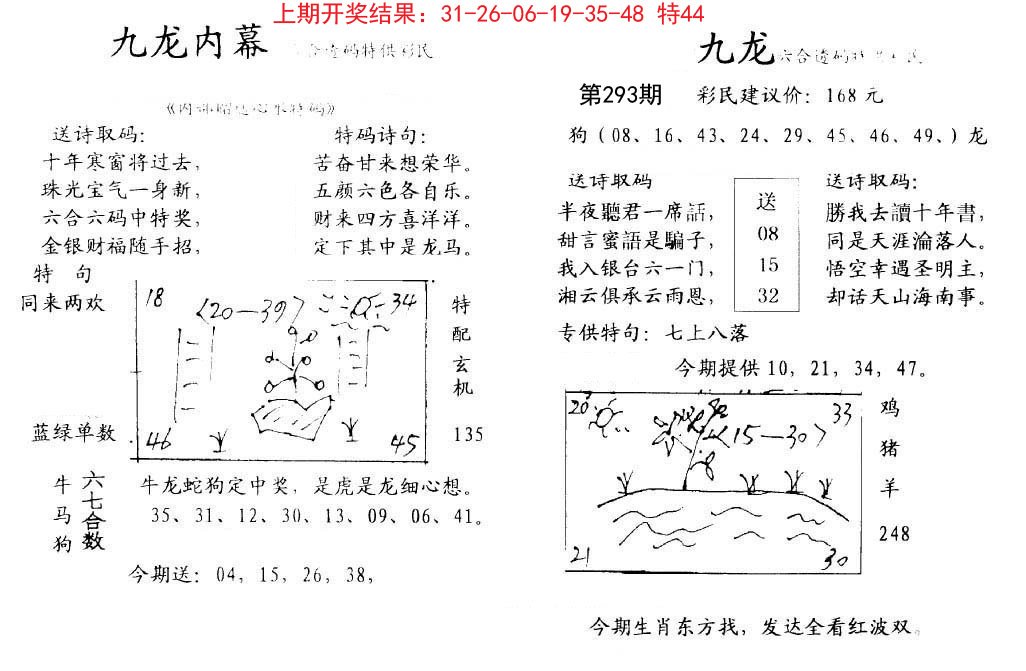 上期开奖结果：31-26-06-19-35-48 特44
九龙内幕
送诗取码：
十年寒窗将过去，
珠光宝气一身新，
六合六码中特奖，
金银财福随手招，
特码诗句：
苦奋甘来想荣华。
五颜六色各自乐。
财来四方喜洋洋。
定下其中是龙马。
特 句
同来两欢
蓝绿单数
18
<20—39>
34
46
45
特配玄机
135
牛马狗
六七合数
牛龙蛇狗定中奖，是虎是龙细心想。
35、31、12、30、13、09、06、41。
今期送：04，15，26，38，
九龙
第293期 彩民建议价：168元
狗（08、16、43、24、29、45、46、49、）龙
送诗取码
半夜聽君一席話，
甜言蜜語是騙子，
我入银台六一门，
湘云俱承云雨恩，
送
08
15
32
送诗取码：
勝我去讀十年書，
同是天涯淪落人。
悟空幸遇圣明主，
却话天山海南事。
专供特句：七上八落
今期提供10，21，34，47。
20
33
<15—30>
21
30
鸡
猪
羊
248
今期生肖东方找，发达全看红波双。